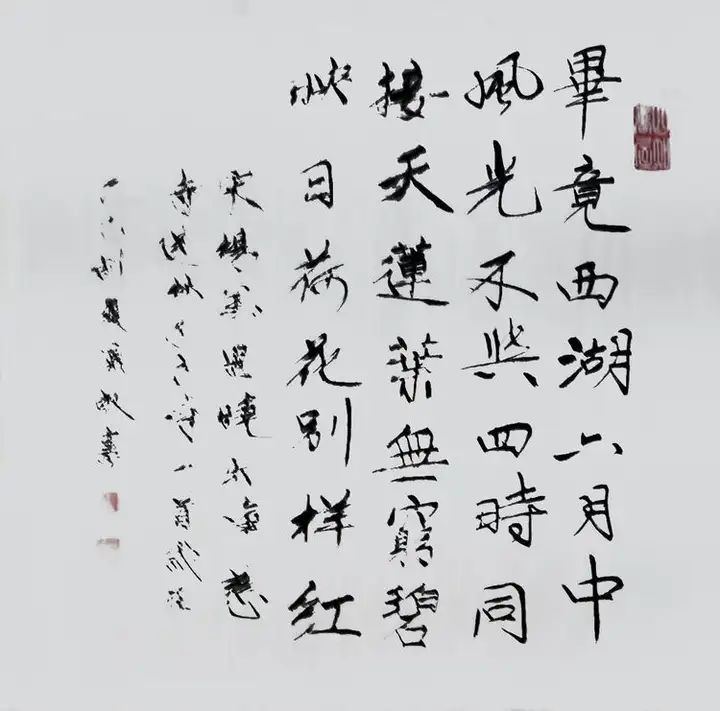 畢竟西湖六月中
風光不與四時同
接天蓮葉無窮碧
映日荷花别样红
宋楊萬里曉出淨慈
寺送林子方詩一首